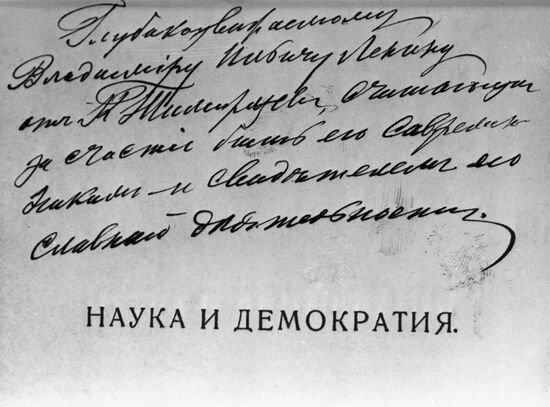 Глубокоуважаемому
Владимiру Ильичу Ленину
отъ К Тимирязева, считающаго
за счастiе быть его современ-
никомъ и свидѣтелемъ его
славной дѣятельности.
НАУКА И ДЕМОКРАТИЯ.